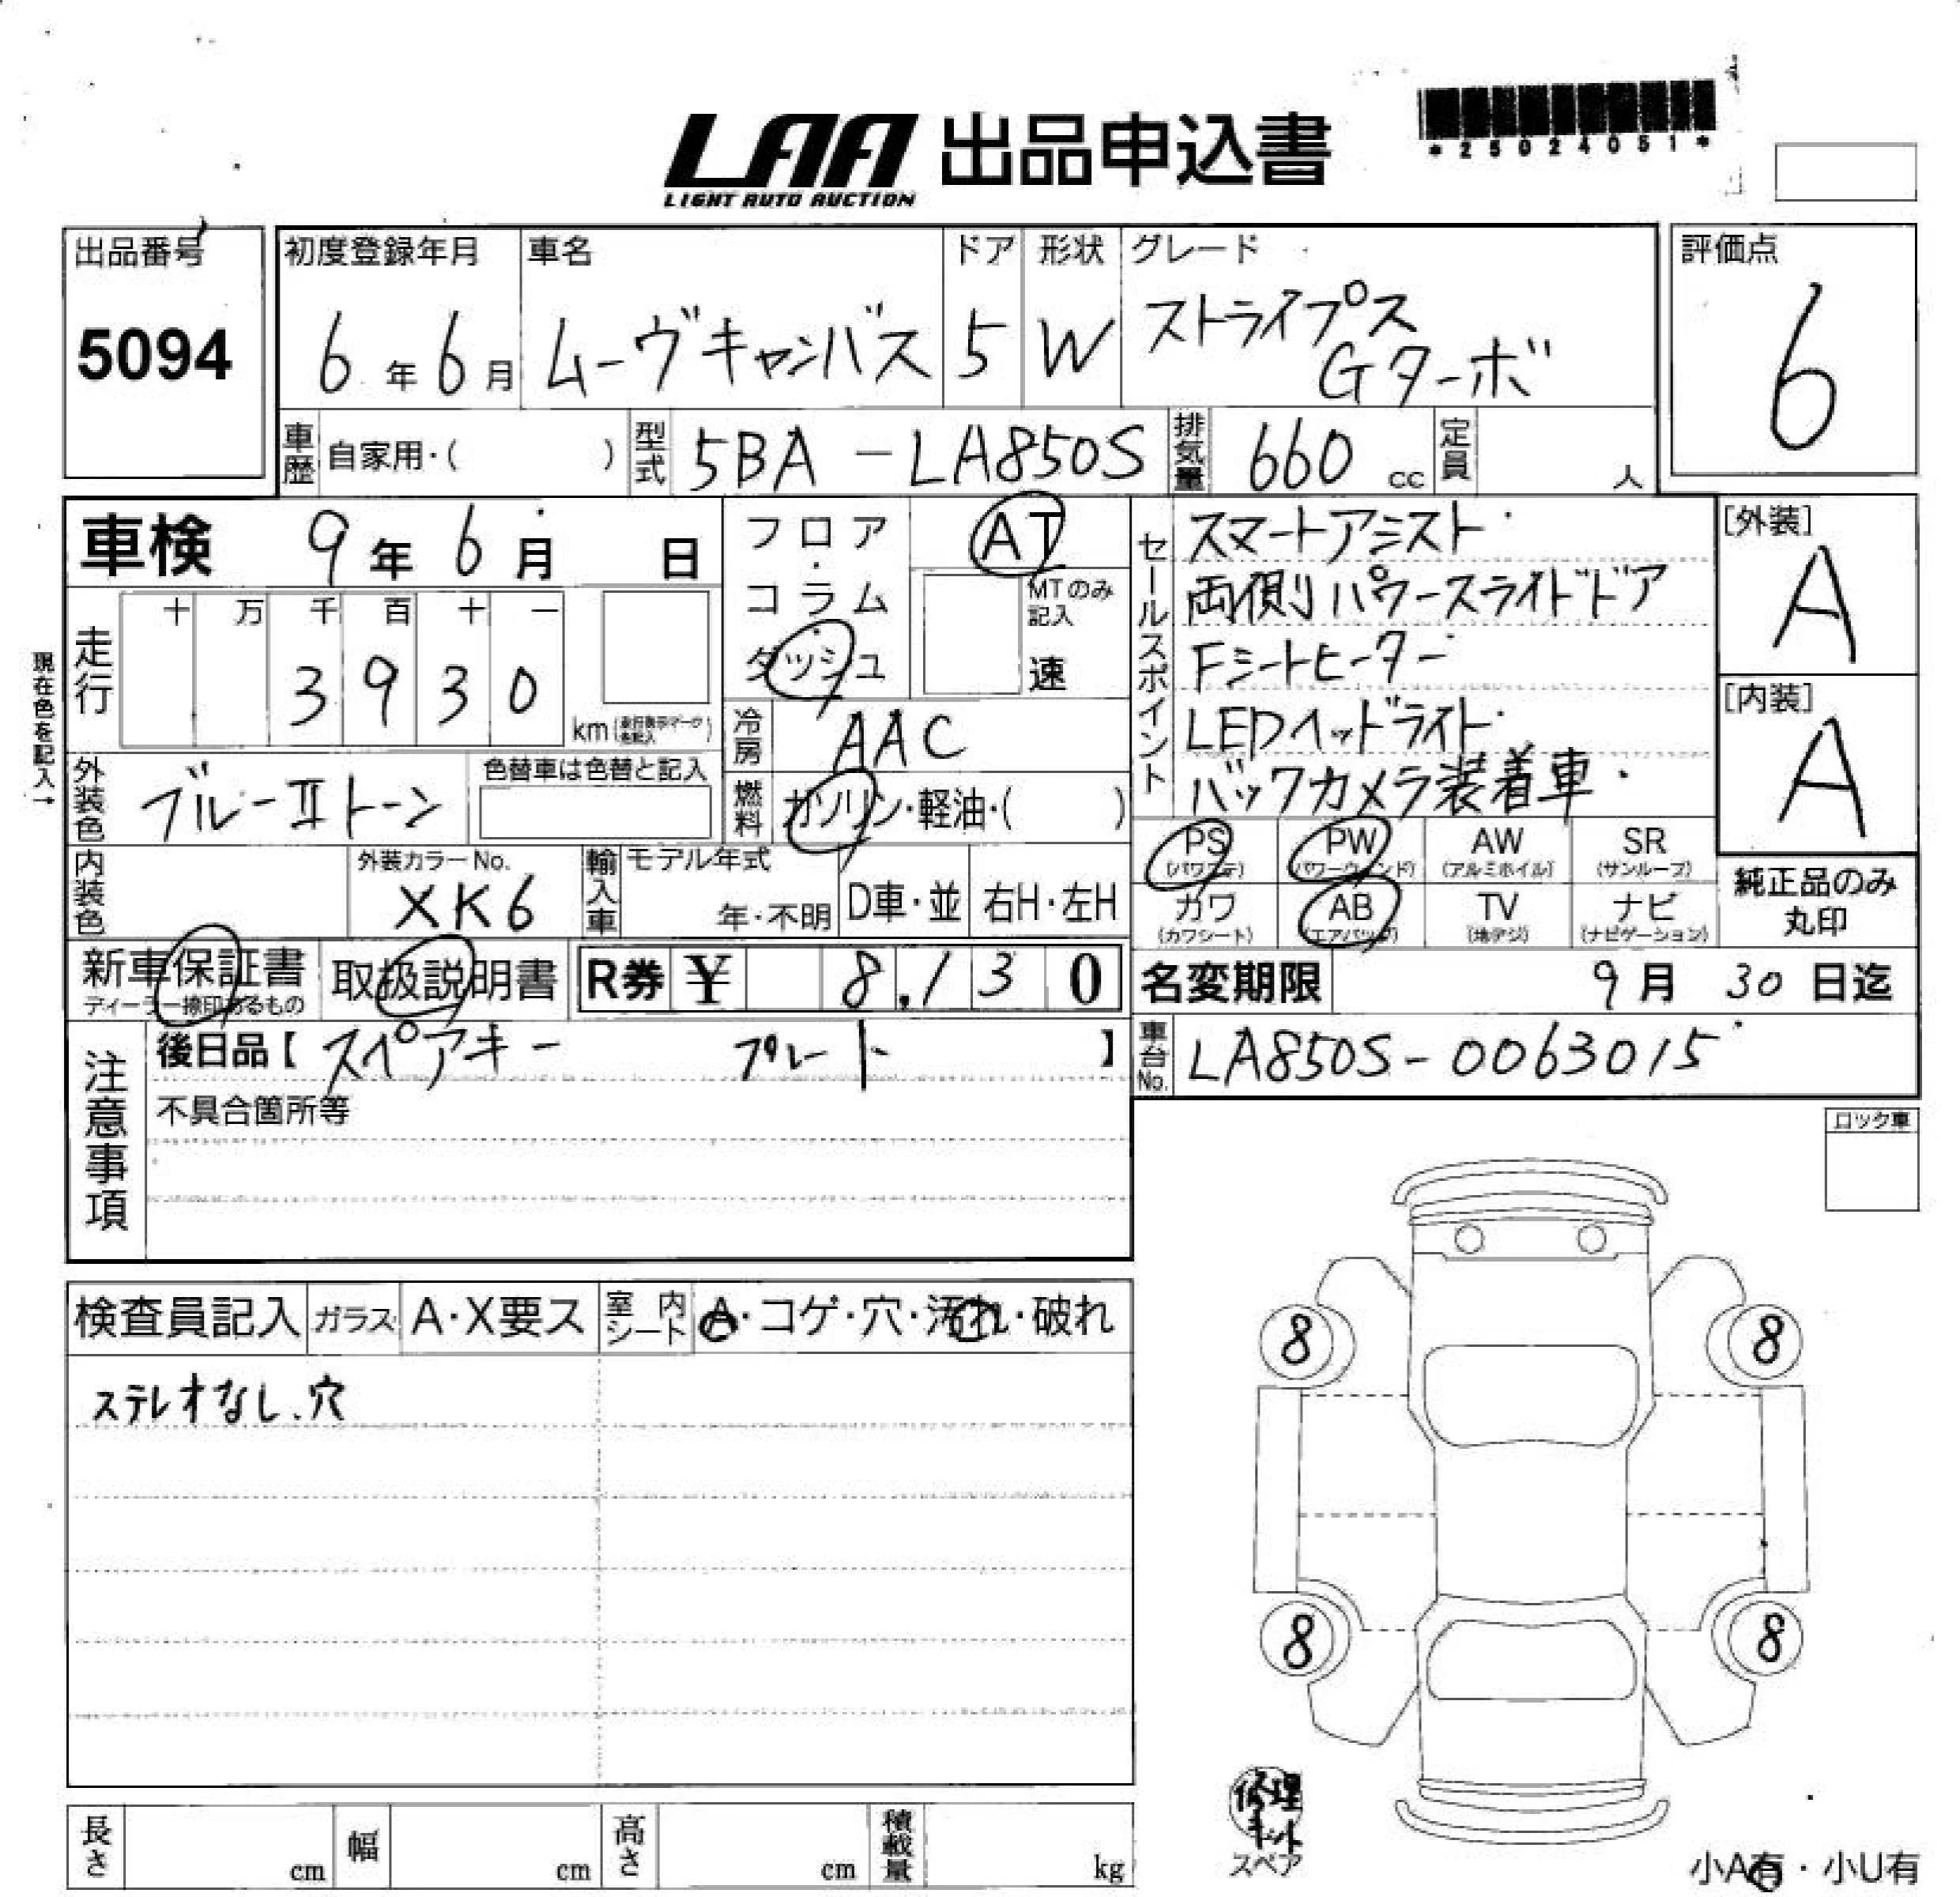 LAA 出品申込書
LIGHT AUTO AUCTION
*25024051*
出品番号
5094
初度登録年月
6年6月
車名
ムーヴキャンバス
ドア
5
形状
W
グレード
ストライプス
Gターボ
評価点
6
車歴 自家用・( )
型式 5BA-LA850S
排気量 660 cc
定員 人
車検 9年6月 日
フロア・コラム・ダッシュ
AT
MTのみ記入
速
現在色を記入→
走行
十 万 千 百 十 一
3 9 3 0
km
冷房 AAC
外装色 ブルーⅡトーン
色替車は色替と記入
燃料 ガソリン・軽油・( )
内装色
外装カラーNo.
XK6
輸入車
モデル年式
年・不明
D車・並
右H・左H
セールスポイント
スマートアシスト
両側パワースライドドア
Fシートヒーター
LEDヘッドライト
バックカメラ装着車
[外装]
A
[内装]
A
PS (パワステ)
PW (パワーウィンド)
AW (アルミホイル)
SR (サンルーフ)
カワ (カワシート)
AB (エアバッグ)
TV (地デジ)
ナビ (ナビゲーション)
純正品のみ
丸印
新車保証書
ディーラー捺印あるもの
取扱説明書
R券 ¥ 8,130
名変期限 9月30日迄
注意事項
後日品【スペアキー プレート】
不具合箇所等
車台No. LA850S-0063015
ロック車
検査員記入
ガラス A・X要ス
室内シート A・コゲ・穴・汚れ・破れ
ステレオなし、穴
8
8
8
8
修理キット
スペア
長さ cm
幅 cm
高さ cm
積載量 kg
小A有・小U有